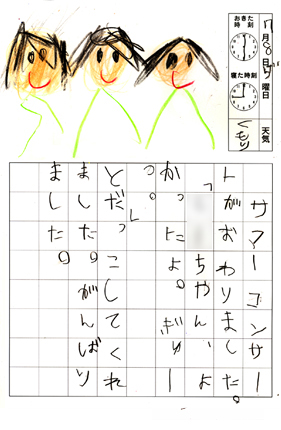 7月8日
曜日
天気
くもり
おきた
時刻
寝た時刻
サマーコンサー
トがおわりました。
「
ちゃん、よ
かったよ。ぎゅー
っ。」
とだっこしてくれ
ました。がんばり
ました。